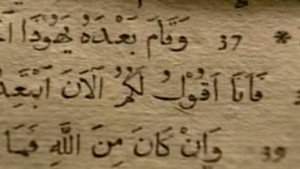 * 37 وَقَامَ بَعْدَهُ يَهُوذَا
فَأَنَا أَقُولُ لَكُمُ الْآنَ
39 وَإِنْ كَانَ مِنَ اللَّهِ فَمَا